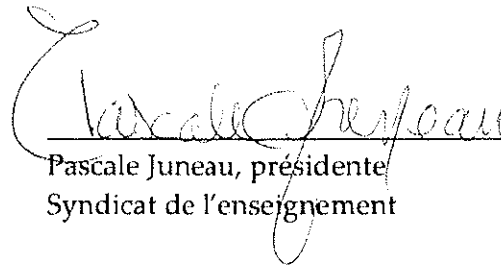 Pascale Juneau
Pascale Juneau, présidente
Syndicat de l'enseignement